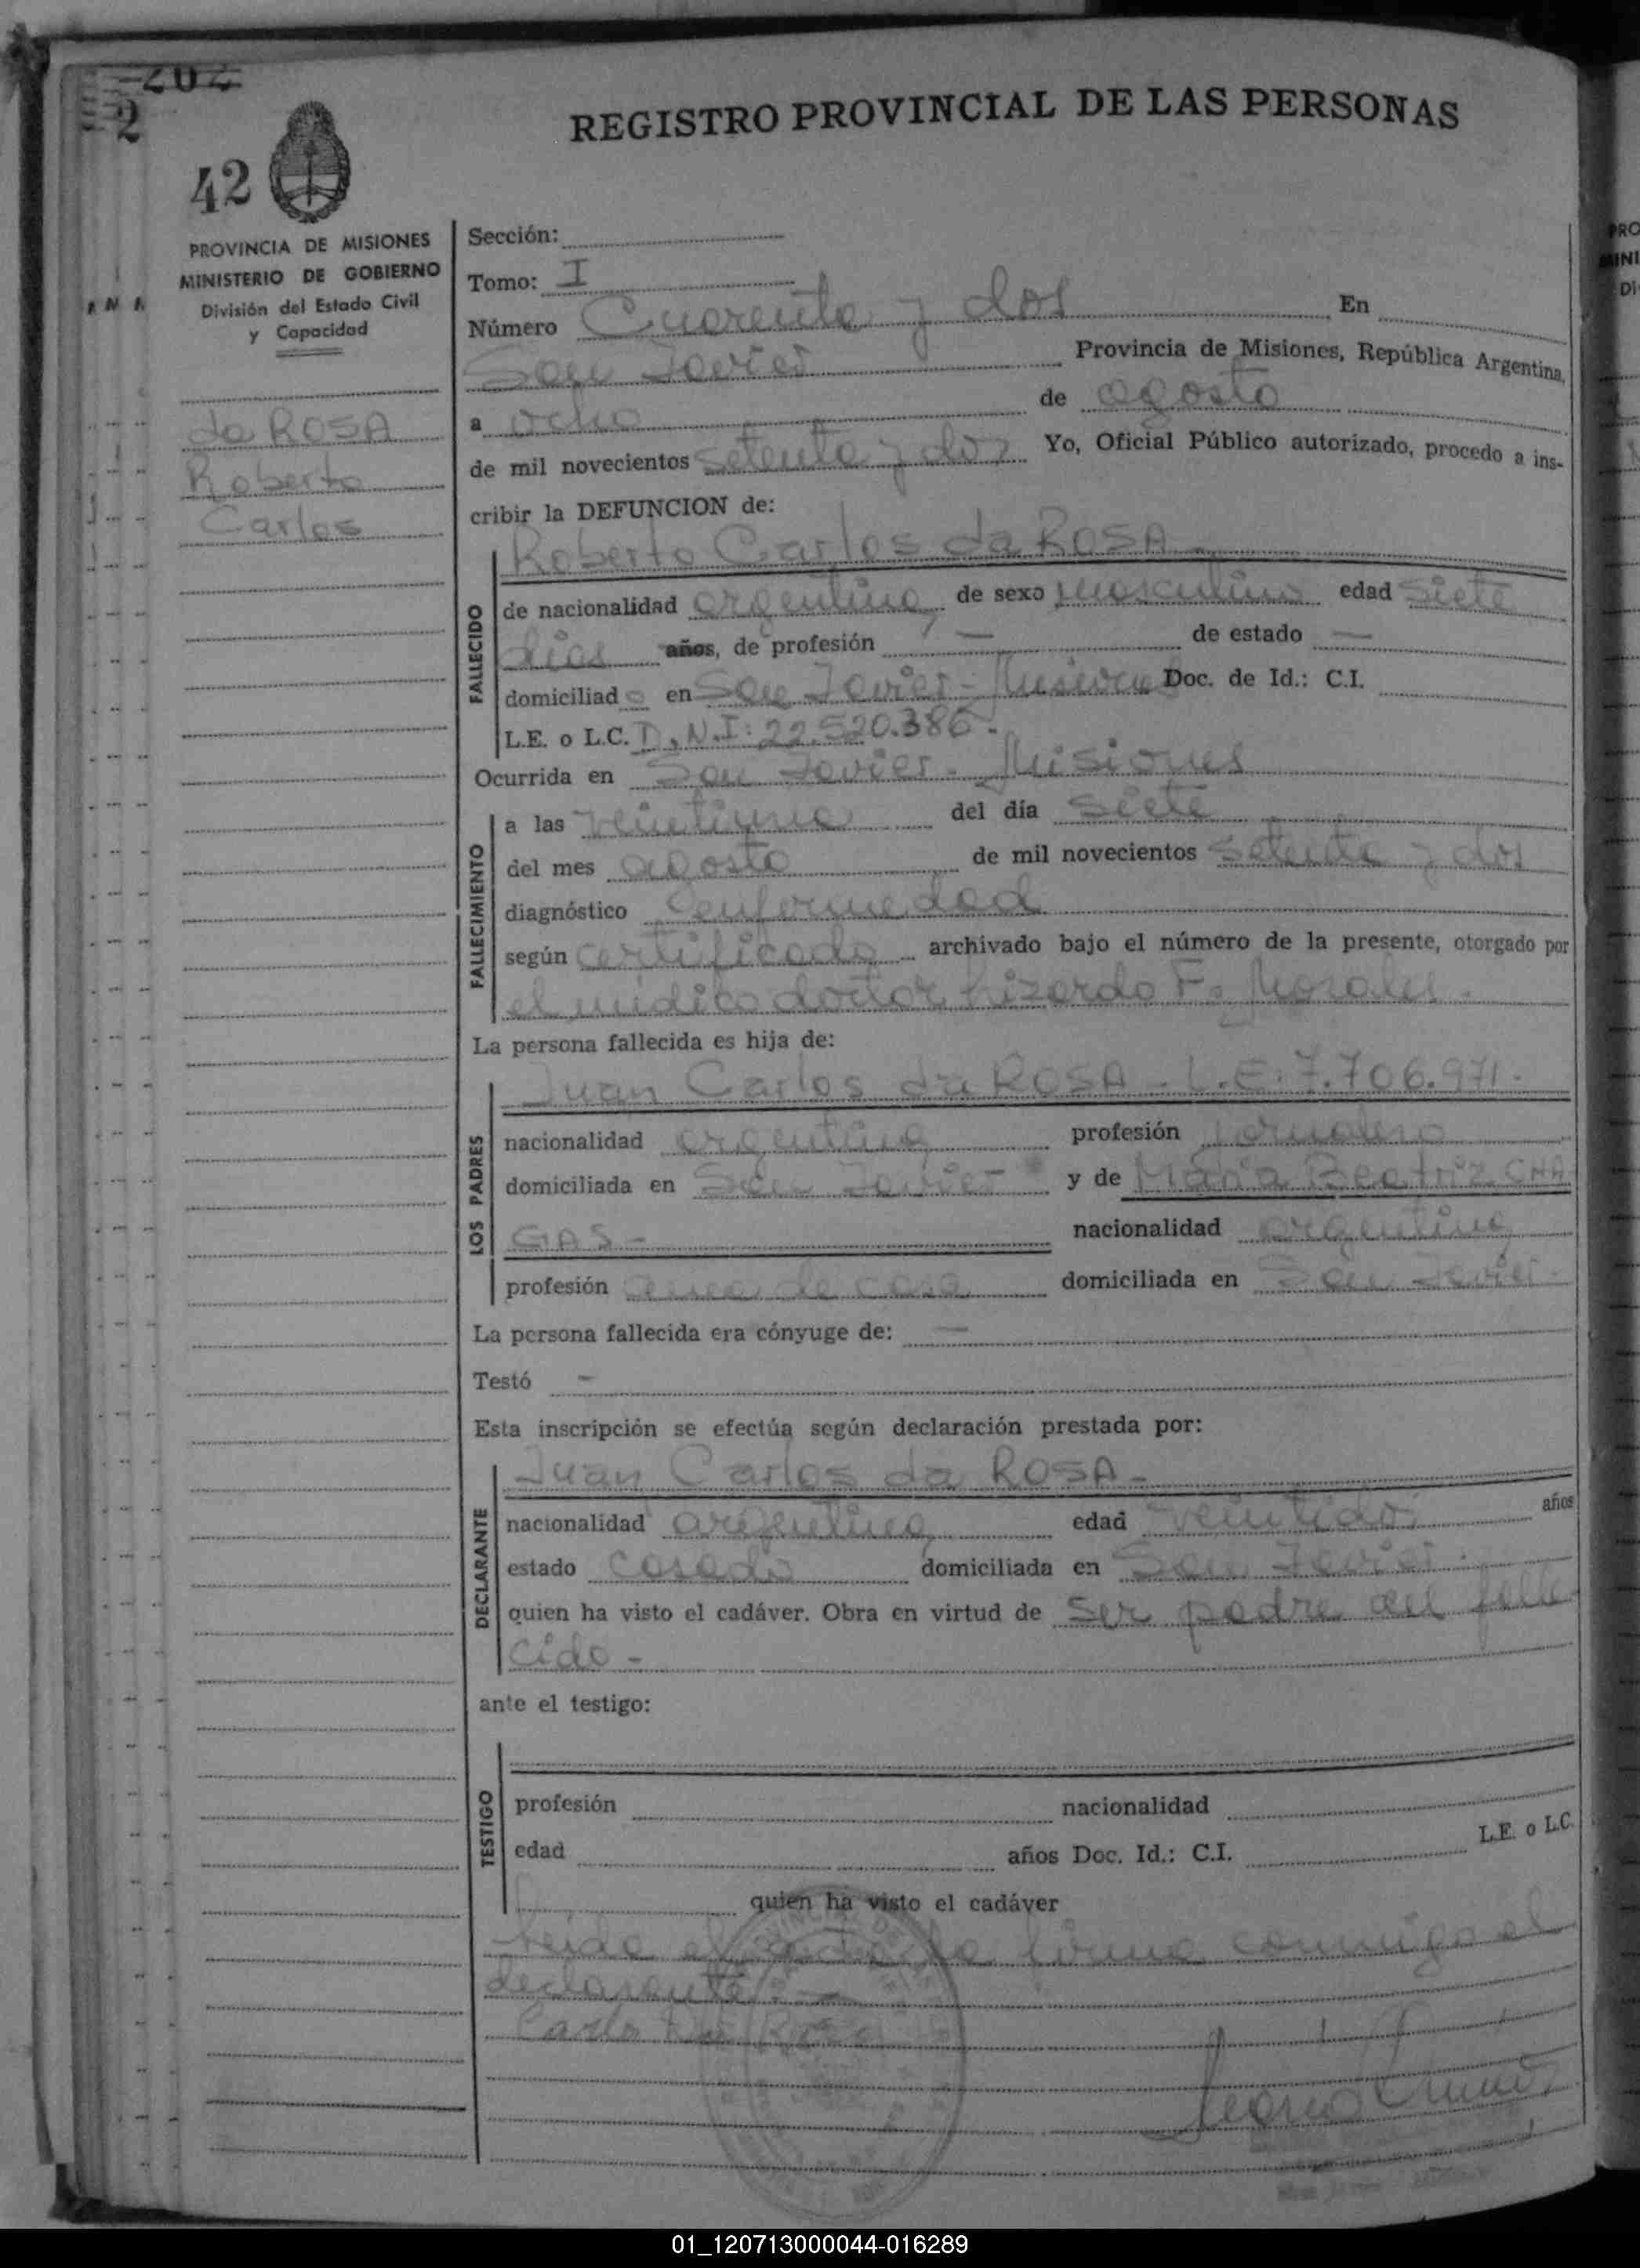 2
42
REGISTRO PROVINCIAL DE LAS PERSONAS
PROVINCIA DE MISIONES
MINISTERIO DE GOBIERNO
División del Estado Civil
y Capacidad
da ROSA
Roberto
Carlos
Sección:
Tomo: I
Número Cuarenta y dos En
San Javier Provincia de Misiones, República Argentina,
a ocho de agosto
de mil novecientos setenta y dos Yo, Oficial Público autorizado, procedo a ins-
cribir la DEFUNCION de:
Roberto Carlos da ROSA
FALLECIDO
de nacionalidad argentina, de sexo masculino edad siete
días años, de profesión — de estado —
domiciliado en San Javier - Misiones Doc. de Id.: C.I.
L.E. o L.C. D.N.I: 22.520.386.
Ocurrida en San Javier - Misiones
FALLECIMIENTO
a las veintiuna del día siete
del mes agosto de mil novecientos setenta y dos
diagnóstico enfermedad
según certificado archivado bajo el número de la presente, otorgado por
el médico doctor Lizardo F. Morales.
La persona fallecida es hija de:
LOS PADRES
Juan Carlos da ROSA - L.E. 7.706.971.
nacionalidad argentina profesión jornalero
domiciliada en San Javier y de María Beatriz CHA
GAS - nacionalidad argentina
profesión ama de casa domiciliada en San Javier
La persona fallecida era cónyuge de: —
Testó -
Esta inscripción se efectúa según declaración prestada por:
DECLARANTE
Juan Carlos da ROSA -
nacionalidad argentina edad veintidos años
estado casado domiciliada en San Javier.
quien ha visto el cadáver. Obra en virtud de ser padre del falle
cido -
ante el testigo:
TESTIGO
profesión nacionalidad
edad años Doc. Id.: C.I. L.E. o L.C.
quien ha visto el cadáver
Leida el acta la firma conmigo el
declarante. —
01_120713000044-016289